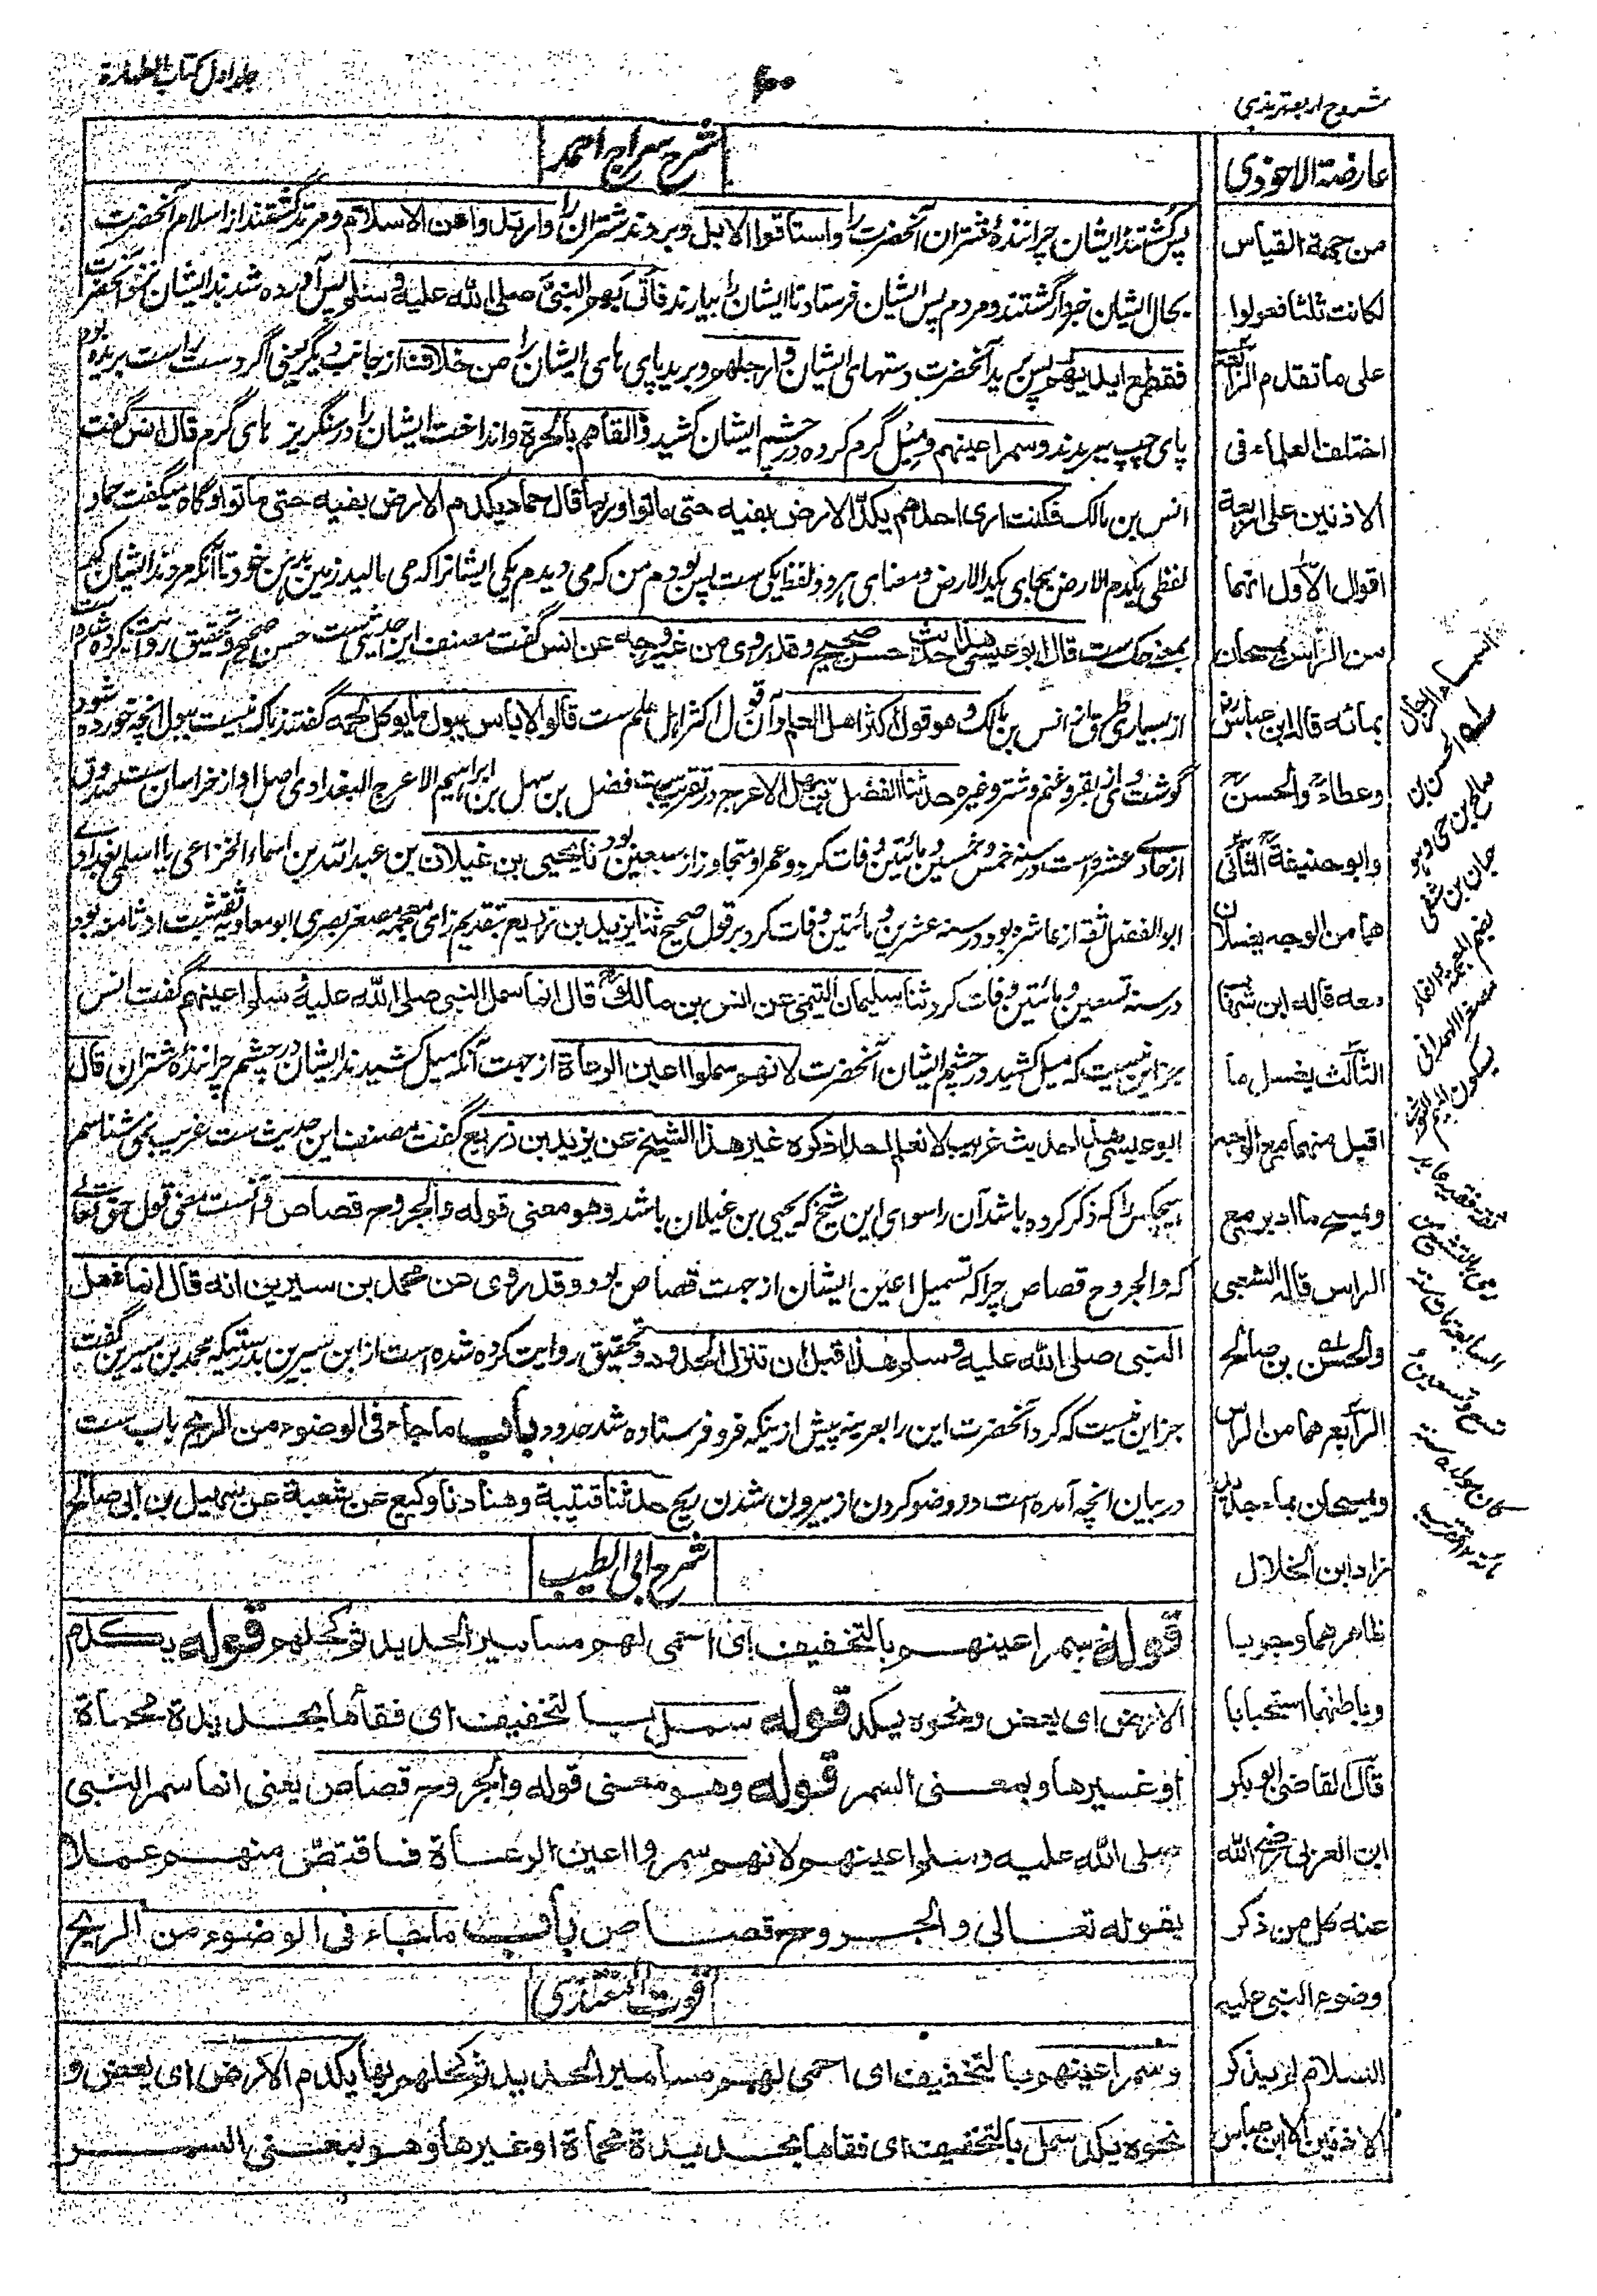 جلد اول كتاب الطهارة
۱۰۰
شروح اربعه ترمذی
شرح سراج احمد
پس کشتند ایشان چرانندهٔ شتران آنحضرت را واستاقوا الابل وبردند شتران را وارتدوا عن الاسلام ومرتد گشتند از اسلام آنحضرت
بحال ایشان خبردار گشتند ومردم پس ایشان فرستاد تا ایشان را بیارند فاتی بهم النبی صلى الله عليه وسلم پس آورده شدند ایشان نزد آنحضرت
فقطع ايديهم پس برید آنحضرت دستهای ایشان وارجلهم وبرید پای های ایشان را من خلاف از جانب دیگر یعنی اگر دست راست بریده بود
پای چپ میبریدند وسمر اعينهم ومیل گرم کرده در چشم ایشان کشید والقاهم بالحرة وانداخت ایشان را در سنگریزه های گرم قال انس گفت
انس بن مالک فكنت ارى احدهم يكد الارض بفيه حتى ماتوا وربما قال حماد يكدم الارض بفيه حتى ماتوا وگاه میگفت حماد
لفظ یکدم الارض بجای یکد الارض ومعنای هر دو لفظ یکی ست پس بودم من که می دیدم یکی ایشانرا که می مالید زمین بدهن خود تا آنکه مردند ایشان
قال ابو عيسى هذا حديث حسن صحيح وقد روى من غير وجه عن انس گفت مصنف این حدیثی ست حسن صحیح وتحقیق روایت کرده شده است
از بسیاری طرق از انس بن مالک وهو قول اكثر اهل العلم وآن قول اکثر اهل علم ست قالوا لا باس ببول ما يوكل لحمه گفتند باک نیست ببول آنچه خورده شود
گوشت وی از بقر وغنم وشتر وغیره حدثنا الفضل بن سهل الاعرج در تقریب ست فضل بن سهل بن ابراهیم الاعرج البغدادی اصل او از خراسان ست صدوق
از حادی عشر است در سنه خمس وخمسین ومائتین وفات کرد وعمر او متجاوز از سبعین بود نا يحيى بن غيلان بن عبد الله بن اسماء الخزاعی یا اسلمی بغدادی
ابو الفضل ثقه از عاشره بود در سنه عشرین ومائتین وفات کرد بر قول صحیح ثنا يزيد بن زريع بتقدیم زای معجمه مصغر بصری ابو معاویه ثقة ثبت از ثامنه بود
در سنه تسعین ومائتین وفات کرد ثنا سليمان التيمى عن انس بن مالك قال انما سمل النبى صلى الله عليه وسلم اعينهم گفت انس
جز این نیست که میل کشید در چشم ایشان آنحضرت لانهم سملوا اعين الرعاة از جهت آنکه میل کشیدند ایشان در چشم چرانندهٔ شتران قال
ابو عيسى هذا حديث غريب لا نعلم احدا ذكره غير هذا الشيخ عن يزيد بن زريع گفت مصنف این حدیث ست غریب نمی شناسم
هیچکس را که ذکر کرده باشد آن را سوای این شیخ که یحیی بن غیلان باشد وهو معنى قوله والجروح قصاص وآنست معنی قول حق تعالی
که والجروح قصاص چرا که تسمیل اعین ایشان از جهت قصاص بود وقد روى عن محمد بن سيرين انه قال انما فعل
النبى صلى الله عليه وسلم هذا قبل ان تنزل الحدود وتحقیق روایت کرده شده است از ابن سیرین بدرستیکه محمد بن سیرین گفت
جز این نیست که کرد آنحضرت این را پیش از ینکه فرو فرستاده شد حدود باب ما جاء فى الوضوء من الريح باب ست
در بیان انچه آمده است در وضو کردن از بیرون شدن ریح حدثنا قتيبة وهناد نا وكيع عن شعبة عن سهيل بن ابى صالح
شرح ابی الطيب
قوله سمر اعينهم بالتخفيف اى احمى لهم مسامير الحديد ثم كحلهم قوله يكدم
الارض اى يعض ونحوه يكد قوله سمل بالتخفيف اى فقأها بحديدة محماة
او غيرها وبمعنى السمر قوله وهو معنى قوله والجروح قصاص يعنى انما سمر النبى
صلى الله عليه وسلم اعينهم لانهم سمروا اعين الرعاة فاقتص منهم عملا
بقوله تعالى والجروح قصاص باب ما جاء فى الوضوء من الريح
قوت المغتذى
وسمر اعينهم بالتخفيف اى احمى لهم مسامير الحديد ثم كحلهم بها يكدم الارض اى يعض و
نحوه يكد سمل بالتخفيف اى فقاها بحديدة محماة او غيرها وهو بمعنى السمر
عارضة الاحوذى
من جهة القياس
لكانت ثلثا فعولوا
على ما تقدم
اختلف العلماء فى
الاذنين على اربعة
اقوال الاول انهما
من الراس يمسحان
بمائه قاله ابن عباس
وعطاء والحسن
وابو حنيفة الثانى
هما من الوجه يغسلان
معه قاله ابن شهاب
الثالث يغسل ما
اقبل منهما مع الوجه
ويمسح ما ادبر مع
الراس قاله الشعبى
والحسن بن صالح
الرابع هما من الراس
ويمسحان بماء جديد
زاد ابن الخلال
ظاهرهما وجوبا
وباطنهما استحبابا
قال القاضى ابو بكر
ابن العربى رضى الله
عنه كل من ذكر
وضوء النبى عليه
السلام لم يذكر
الاذنين الا ابن عباس
اسماء الرجال
الحسن بن
صالح بن حى وهو
حيان بن شفى
بضم المعجمة والفاء
مصغرا الهمدانى
بسكون الميم الثورى
ثقة فقيه عابد
رمى بالتشيع من
السابعة مات سنة
تسع وستين و
كان مولده سنة
مائة